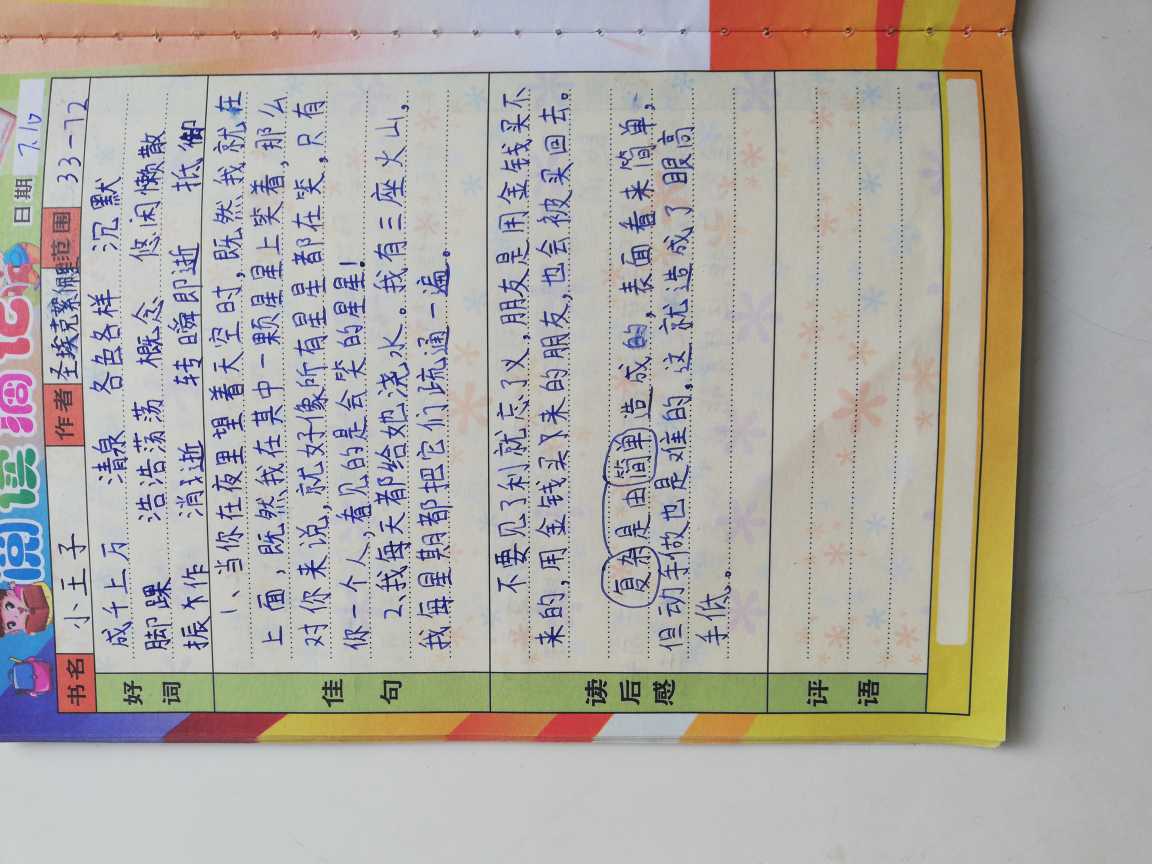 阅读摘记
日期 7.10
书名 小王子 作者 圣埃克絮佩里 范围 33-72
好词
成千上万 清泉 各色各样 沉默
脚踝 浩浩荡荡 概念 悠闲懒散
振作 消逝 转瞬即逝 抵御
佳句
1、当你在夜里望着天空时,既然我就在
上面,既然我在其中一颗星星上笑着,那么
对你来说,就好像所有星星都在笑,只有
你一个人,看见的是会笑的星星!
2、我每天都给她浇水。我有三座火山,
我每星期都把它们疏通一遍。
读后感
不要见了利就忘了义,朋友是用金钱买不
来的,用金钱买下来的朋友,也会被买回去。
复杂是由简单造成的,表面看来简单,
但动手做也是难的,这就造成了眼高
手低。
评语